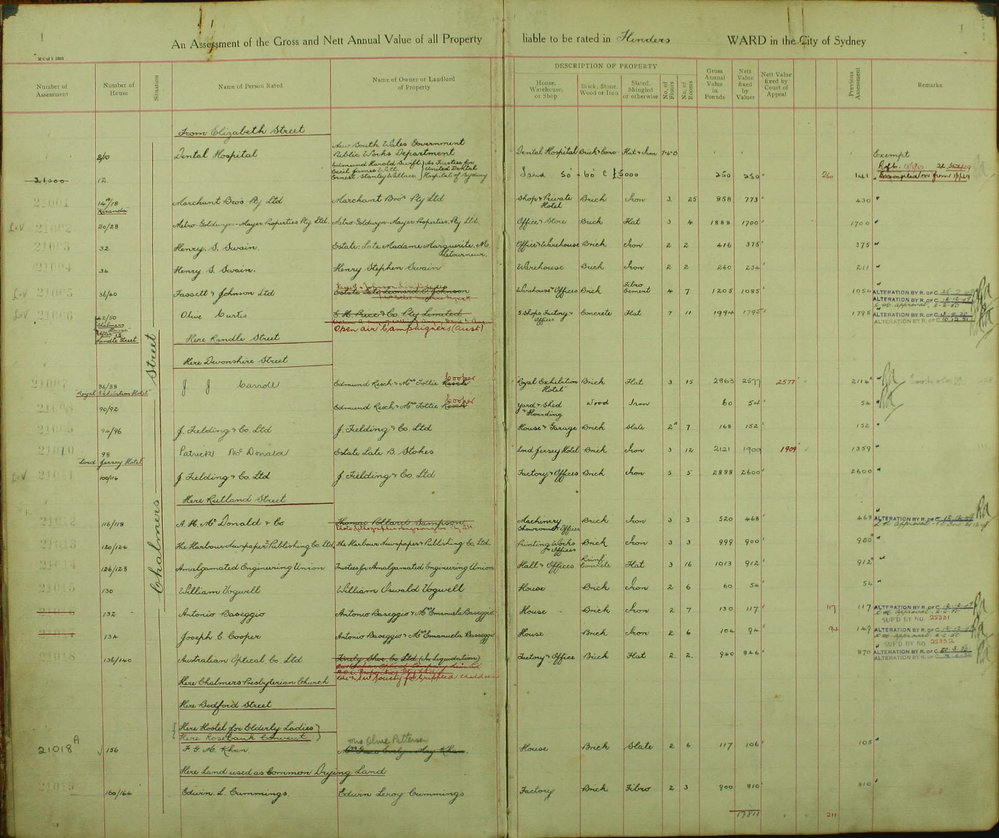 An Assessment of the Gross and Nett Annual Value of all Property liable to be rated in Flinders WARD in the City of Sydney
DESCRIPTION OF PROPERTY
Number of Assessment Number of House Situation Name of Person Rated Name of Owner or Landlord of Property House, Warehouse, or Shop. Brick, Stone, Wood or Iron Slated, Shingled or otherwise No. of Floors No. of Rooms Gross Annual Value in Pounds Nett Value fixed by Valuers Nett Value fixed by Court of Appeal Previous Assessment Remarks
Chalmers Street
From Elizabeth Street
8/10 Dental Hospital New South Wales Government Public Works Department Dental Hospital Brick & Conc Flat & Iron Exempt
21,000 12 Edmund Harold Swift Cecil James Ernest Stanley Wallace As Trustees for United Dental Hospital of Sydney Land 50 x 60 £5000 250 250 250 141
21001 14/18 Marchant Bros Pty Ltd Marchant Bros Pty Ltd Shops & Private Hotel Brick Iron 3 25 858 773 430
21002 20/28 Metro-Goldwyn-Mayer Properties Pty Ltd Metro-Goldwyn-Mayer Properties Pty Ltd Office & Store Brick Flat 3 4 1888 1700 1700
21003 32 Henry S. Swain Estate Late Madame Marguerite M. Office & Warehouse Brick Iron 2 2 416 375 375
21004 34 Henry S. Swain. Henry Stephen Swain Warehouse Brick Iron 2 2 260 234 211
21005 36/40 Fassett & Johnson Ltd Estate Late Leonard C. Johnson Warehouse & Offices Brick Fibro Cement 4 7 1205 1085 1054 ALTERATION BY R. OF C.
21006 42/50 Chalmers Street Randle Street Olive Curtis Pty Limited Open air Campaigners (Aust) 5 Shops Factory & Office Concrete Flat 7 11 1994 1795 1795 ALTERATION BY R. OF C.
Here Randle Street
Here Devonshire Street
21007 86/88 Royal Exhibition Hotel J J Carrole Edmund Resch & Mrs Tottie Resch Cooper Royal Exhibition Hotel Brick Flat 3 15 2863 2577 2577 2114
21008 90/92 Edmund Resch & Mrs Tottie Resch Cooper Yard & Shed & Hoarding Wood Iron 60 54 54
21009 94/96 J. Fielding & Co. Ltd J. Fielding & Co. Ltd House & Garage Brick Slate 2 7 168 152 152
21010 98 Lord Jersey Hotel Patrick McDonald Estate Late B. Stokes Lord Jersey Hotel Brick Iron 3 12 2121 1909 1909 1359
21011 100/114 J Fielding & Co. Ltd J Fielding & Co. Ltd Factory & Offices Brick Iron 5 5 2888 2600 2600
Here Rutland Street
21012 116/118 A. H. McDonald & Co Thomas Pollard Sampson Machinery Showrooms & Office Brick Iron 3 3 520 468 468 ALTERATION BY R. OF C.
21013 120/124 The Harbour Newspaper & Publishing Co. Ltd The Harbour Newspaper & Publishing Co. Ltd Printing Works & Offices Brick Iron 3 3 999 900 900
21014 126/128 Amalgamated Engineering Union Trustees for Amalgamated Engineering Union Hall & Offices Flat 3 16 1013 912 912
21015 130 William Vogwell William Oswald Vogwell House Brick Iron 2 6 60 54 54
132 Antonio Baseggio Antonio Baseggio & Mrs Emanuela Baseggio House Brick Iron 2 7 130 117 117 117 ALTERATION BY R. OF C. SUP'D BY NO. 22331
134 Joseph E Cooper Antonio Baseggio & Mrs Emanuela Baseggio House Brick Iron 2 6 104 94 94 149 ALTERATION BY R. OF C. SUP'D BY NO. 22332
21018 136/140 Australian Optical Co. Ltd Shoe Co. Ltd (In Liquidation) Society for Crippled Children Factory & Office Brick Flat 2 2 940 846 870 ALTERATION BY R. OF C.
Here Chalmers Presbyterian Church
Here Bedford Street
Here Hostel for Elderly Ladies
Here Rosebank Convent
21018A 156 F. G. M. Khan Mrs Olive Patterson House Brick Slate 2 6 117 106 105
Here Land used as Common Drying Land
21019 160/164 Edwin L. Cummings. Edwin Leroy Cummings Factory Brick Fibro 2 3 900 810 810
17811 211